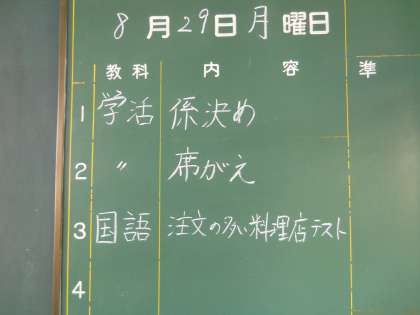 8月29日月曜日
教科 内容 準
1 学活 係決め
2 〃 席がえ
3 国語 注文の多い料理店テスト
4